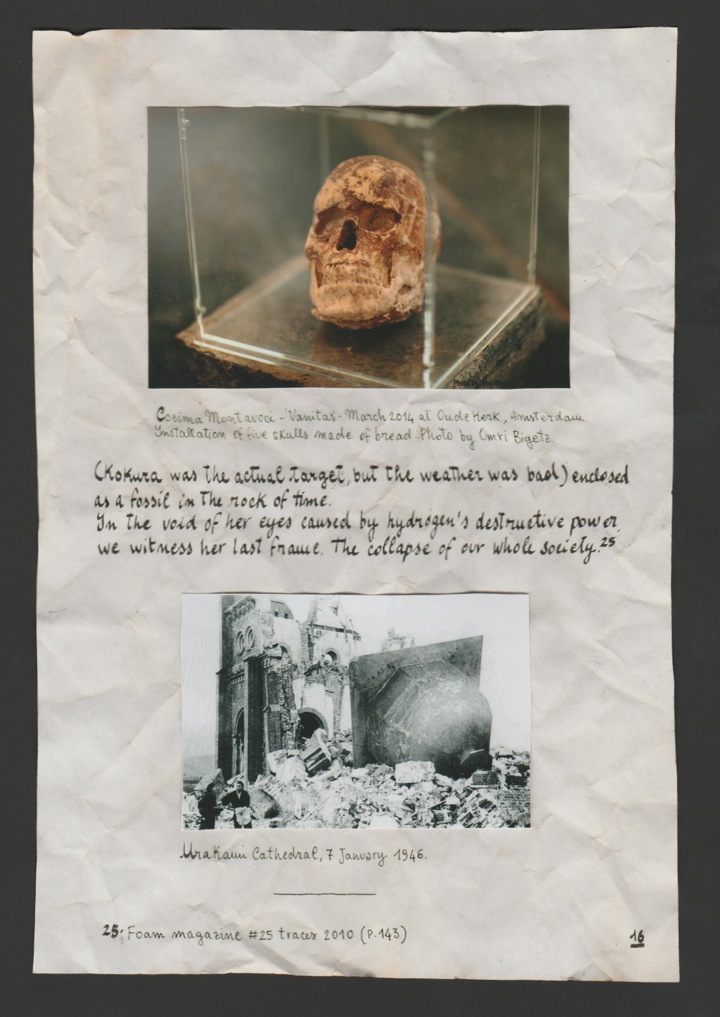 Cosima Montavoci - Vanitas - March 2014 at Oude Kerk, Amsterdam
Installation of five skulls made of bread. Photo by Omri Bigetz.
(Kokura was the actual target, but the weather was bad) enclosed
as a fossil in the rock of time.
In the void of her eyes caused by hydrogen's destructive power,
we witness her last frame. The collapse of our whole society.25
Urakami Cathedral, 7 January 1946.
25: Foam magazine #25 traces 2010 (P.143)
16